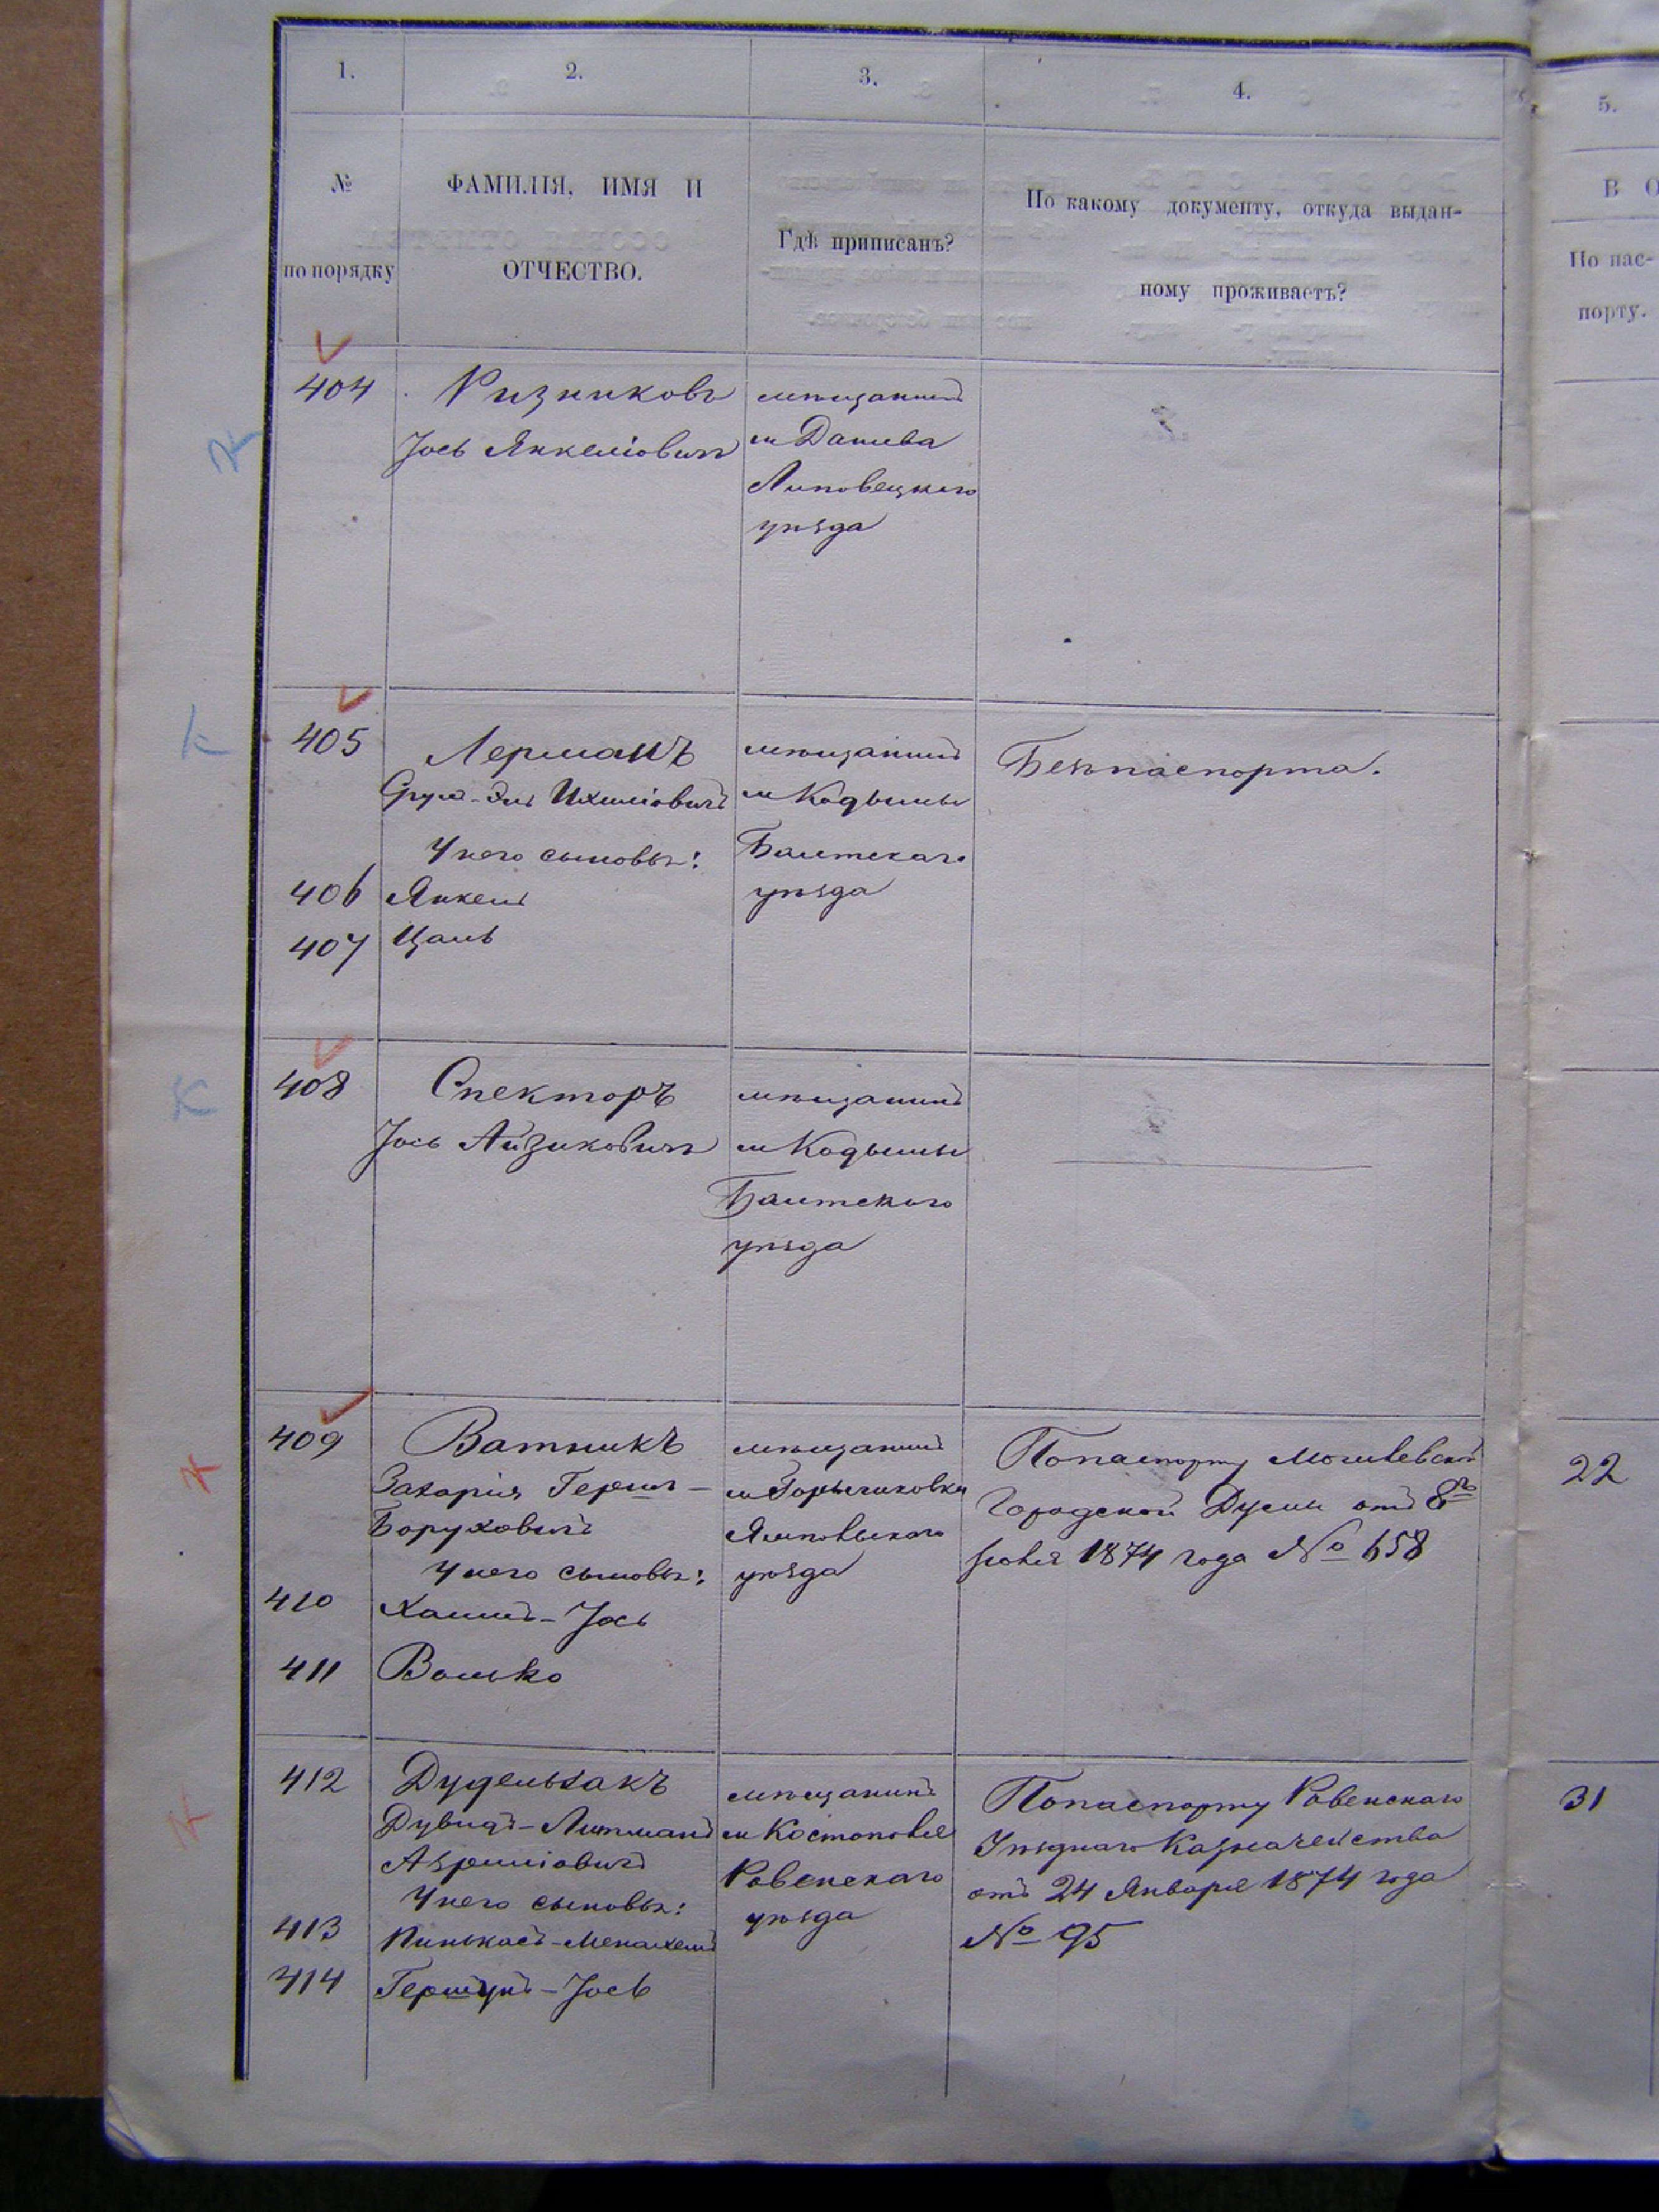 1.
2.
3.
4.
5.
№
по порядку
ФАМИЛІЯ, ИМЯ И
ОТЧЕСТВО.
Гдѣ приписанъ?
По какому документу, откуда выдан-
ному проживаетъ?
В О
По пас-
порту.
404
Ризниковъ
Іось Янкеліовичъ
мѣщанинъ
м Дашева
Липовецкаго
уѣзда
405
Лерманъ
Сруль-Эль
мѣщанинъ
м Кодымы
Балтскаго
уѣзда
Безъ паспорта.
У него сыновья:
406 Янкель
407 Цаль
408
Спекторъ
Іось Айзиковичъ
мѣщанинъ
м Кодымы
Балтскаго
уѣзда
409
Ватникъ
Захарія Гершъ-
Боруховичъ
мѣщанинъ
м
Ямпольскаго
уѣзда
По паспорту Могилевской
Городской Думы отъ 8го
1874 года № 658
22
У него сыновья:
410 Хаимъ-Іось
411 Волько
412
Дудельзакъ
Дувидъ-Литманъ
мѣщанинъ
м Костополя
Ровенскаго
уѣзда
По паспорту Ровенскаго
Уѣзднаго Казначейства
отъ 24 Января 1874 года
№ 95
31
У него сыновья:
413 Пинькасъ-Менахемъ
414 Гершунъ-Іось